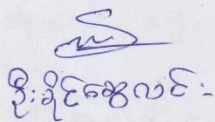 ဦးခိုင်ဆွေလင်း